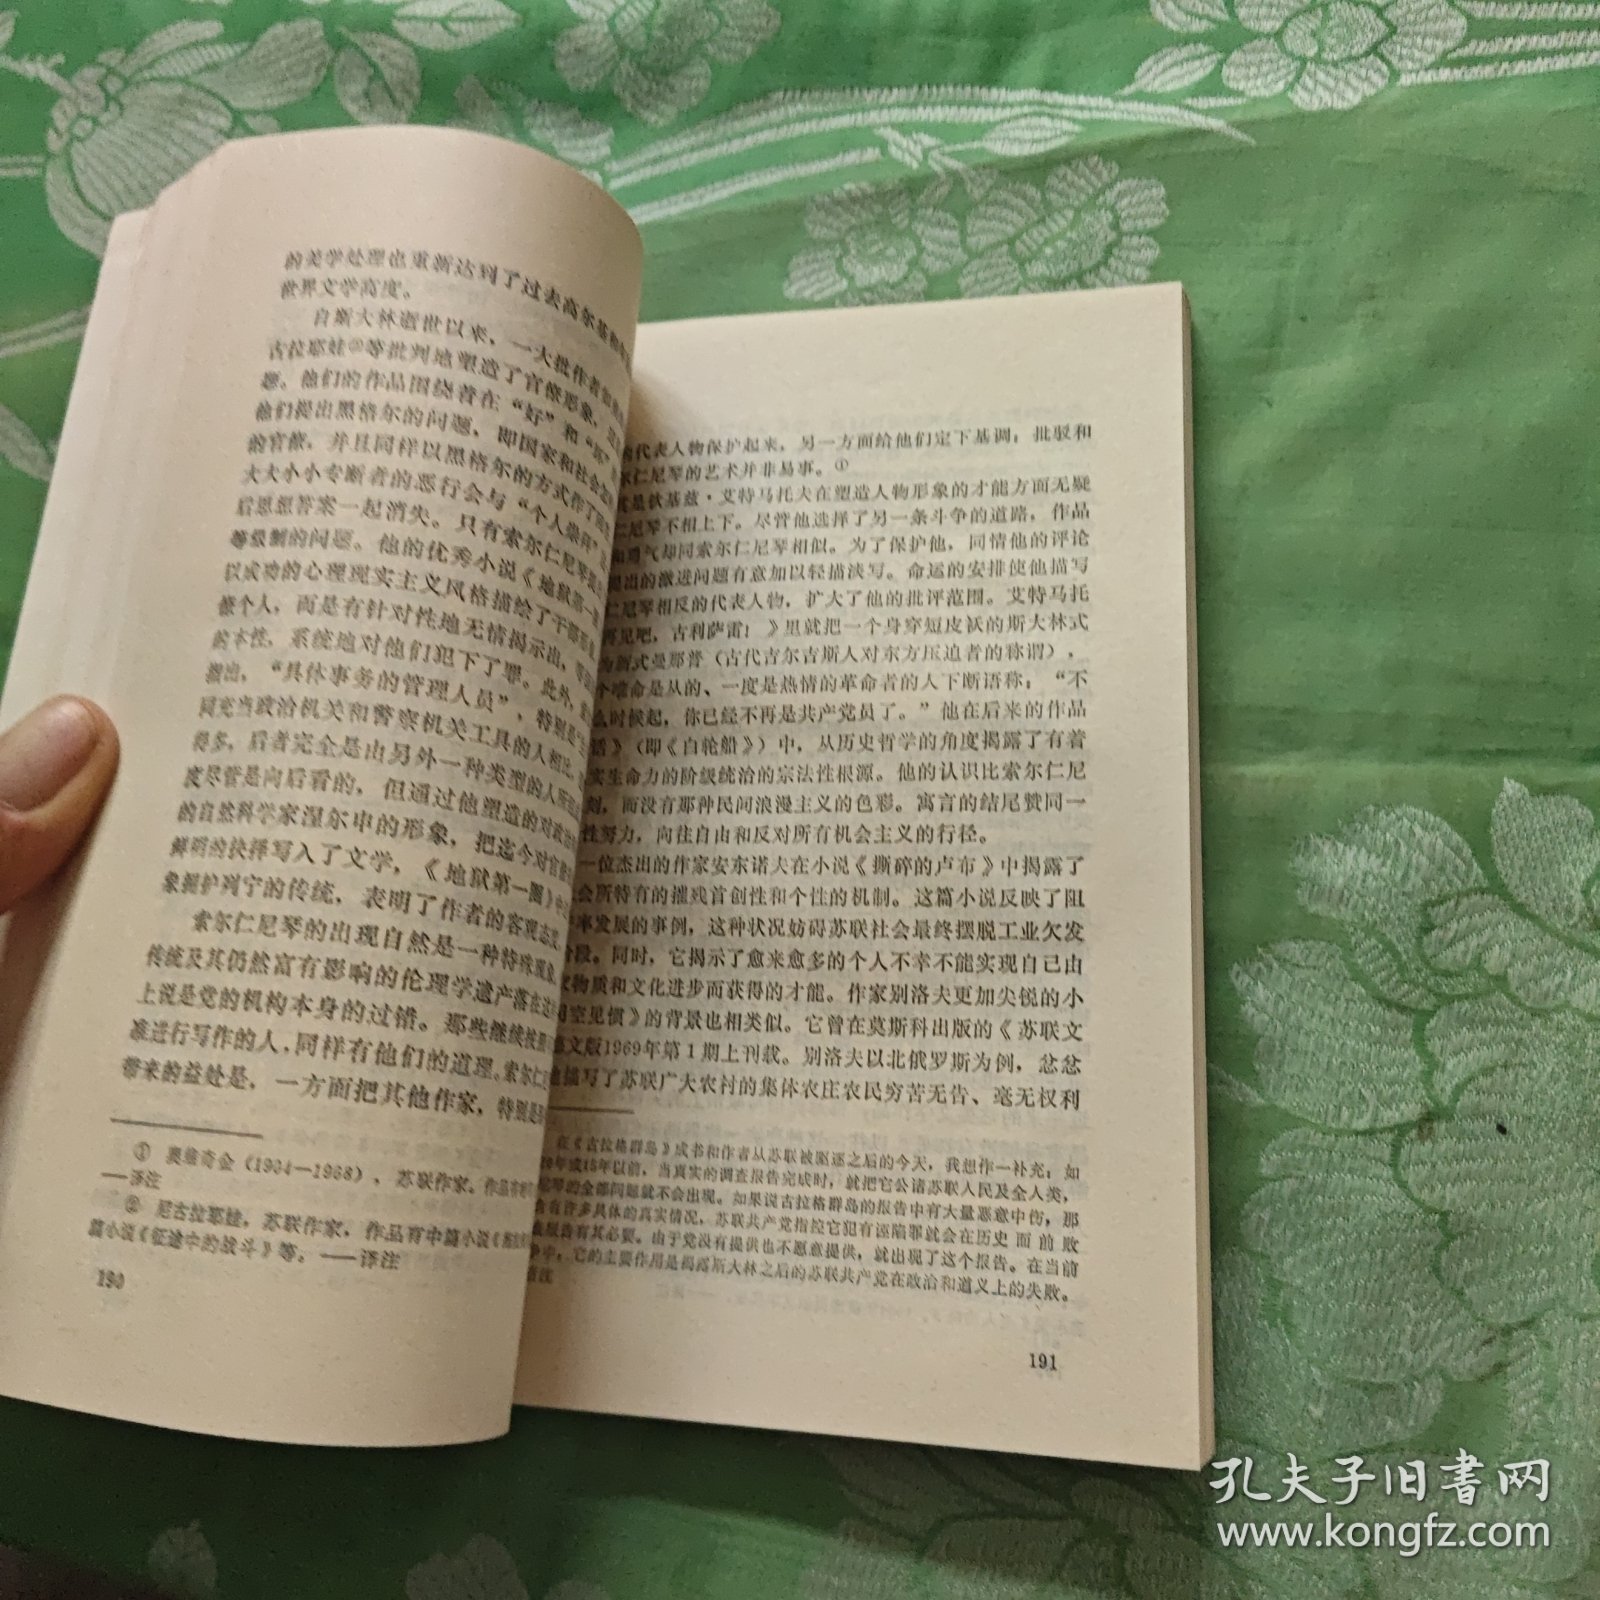 的美学处理也重新达到了过去高尔基
世界文学高度。
自斯大林逝世以来，一大批作者
古拉耶娃②等批判地塑造了官僚形象，
题。他们的作品围绕着在“好”和
他们提出黑格尔的问题，即国家和社会
的官僚，并且同样以黑格尔的方式作了
大大小小专断者的恶行会与“个人崇拜”
后思想答案一起消失。只有索尔仁尼琴
等级制的问题。他的优秀小说《地狱第一
以成功的心理现实主义风格描绘了干部形象，
僚个人，而是有针对性地无情揭示出，
的本性，系统地对他们犯下了罪。此外，
指出，“具体事务的管理人员”，特别是
同充当政治机关和警察机关工具的人相比，
得多，后者完全是由另外一种类型的人所
度尽管是向后看的，但通过他塑造的对政治
的自然科学家涅尔中的形象，把迄今对官僚
鲜明的抉择写入了文学，《地狱第一圈》中
象拥护列宁的传统，表明了作者的客观态度
索尔仁尼琴的出现自然是一种特殊现象，
传统及其仍然富有影响的伦理学遗产落在这
上说是党的机构本身的过错。那些继续按照
准进行写作的人，同样有他们的道理。索尔仁
带来的益处是，一方面把其他作家，特别是
①　奥维奇金（1904—1968），苏联作家，作品有
——译注
②　尼古拉耶娃，苏联作家，作品有中篇小说《
篇小说《征途中的战斗》等。——译注
190
代表人物保护起来，另一方面给他们定下基调；批驳和
尔仁尼琴的艺术并非易事。①
是钦基兹·艾特马托夫在塑造人物形象的才能方面无疑
仁尼琴不相上下。尽管他选择了另一条斗争的道路，作品
和勇气却同索尔仁尼琴相似。为了保护他，同情他的评论
提出的激进问题有意加以轻描淡写。命运的安排使他描写
仁尼琴相反的代表人物，扩大了他的批评范围。艾特马托
再见吧，古利萨雷！》里就把一个身穿短皮袄的斯大林式
为新式曼那普（古代吉尔吉斯人对东方压迫者的称谓），
个唯命是从的、一度是热情的革命者的人下断语称：“不
么时候起，你已经不再是共产党员了。”他在后来的作品
话》（即《白轮船》）中，从历史哲学的角度揭露了有着
实生命力的阶级统治的宗法性根源。他的认识比索尔仁尼
刻，而没有那种民间浪漫主义的色彩。寓言的结尾赞同一
性努力，向往自由和反对所有机会主义的行径。
一位杰出的作家安东诺夫在小说《撕碎的卢布》中揭露了
会所特有的摧残首创性和个性的机制。这篇小说反映了阻
率发展的事例，这种状况妨碍苏联社会最终摆脱工业欠发
阶段。同时，它揭示了愈来愈多的个人不幸不能实现自己由
物质和文化进步而获得的才能。作家别洛夫更加尖锐的小
司空见惯》的背景也相类似。它曾在莫斯科出版的《苏联文
文版1969年第1期上刊载。别洛夫以北俄罗斯为例，忿忿
地描写了苏联广大农村的集体农庄农民穷苦无告、毫无权利
在《古拉格群岛》成书和作者从苏联被驱逐之后的今天，我想作一补充：如
年或15年以前，当真实的调查报告完成时，就把它公诸苏联人民及全人类，
琴的全部问题就不会出现。如果说古拉格群岛的报告中有大量恶意中伤，那
含有许多具体的真实情况，苏联共产党指控它犯有诬陷罪就会在历史面前败
报告有其必要。由于党没有提供也不愿意提供，就出现了这个报告。在当前
中，它的主要作用是揭露斯大林之后的苏联共产党在政治和道义上的失败。
注
191
孔夫子旧书网
www.kongfz.com